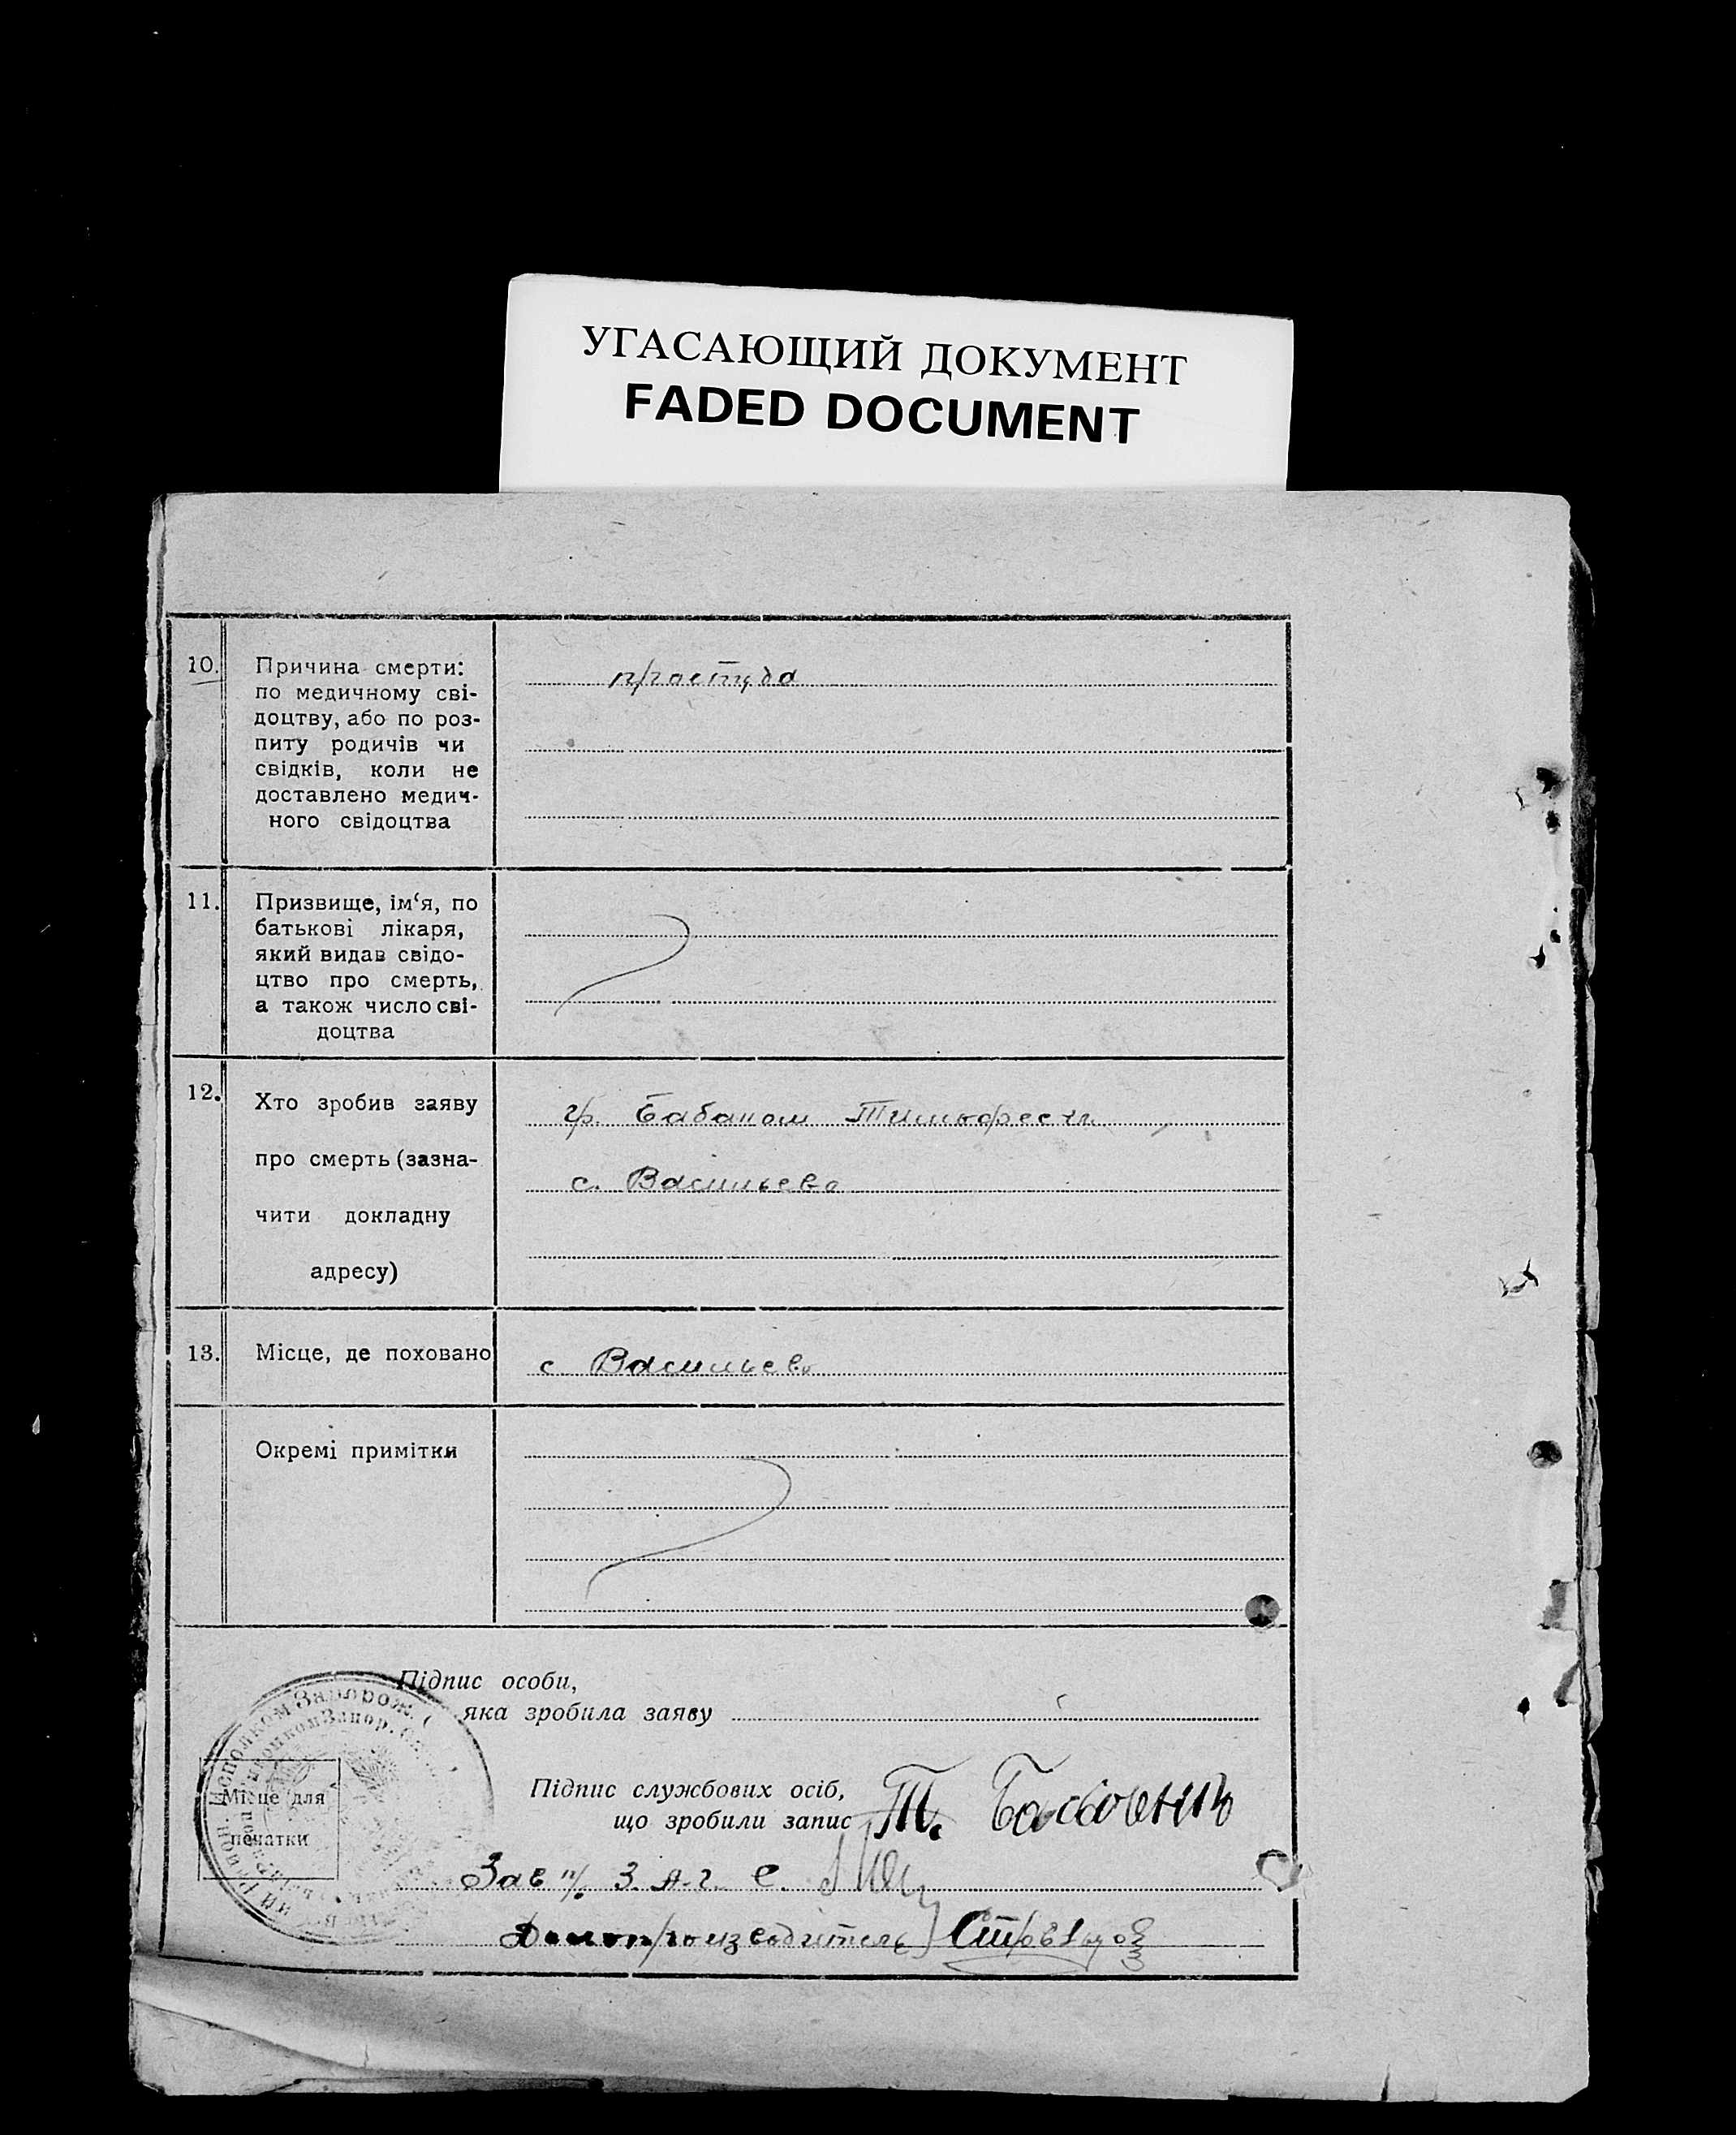 УГАСАЮЩИЙ ДОКУМЕНТ
FADED DOCUMENT
10.
Причина смерти:
по медичному сві-
доцтву, або по роз-
питу родичів чи
свідків, коли не
доставлено медич-
ного свідоцтва
простуда
11.
Призвище, ім‘я, по
батькові лікаря,
який видав свідо-
цтво про смерть,
а також число сві-
доцтва
12.
Хто зробив заяву
про смерть (зазна-
чити докладну
адресу)
гр. Бабаком
с. Васильево
13.
Місце, де поховано
с Васильево
Окремі примітки
Підпис особи,
яка зробила заяву
Місце для
печатки
Підпис службових осіб,
що зробили запис
Т.
Зав
Делопроизводитель